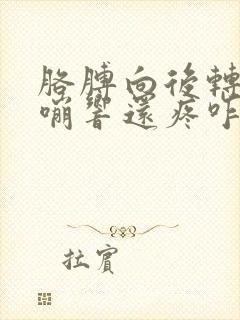 胳膊向後轉
嘣響還疼咋
拉賓